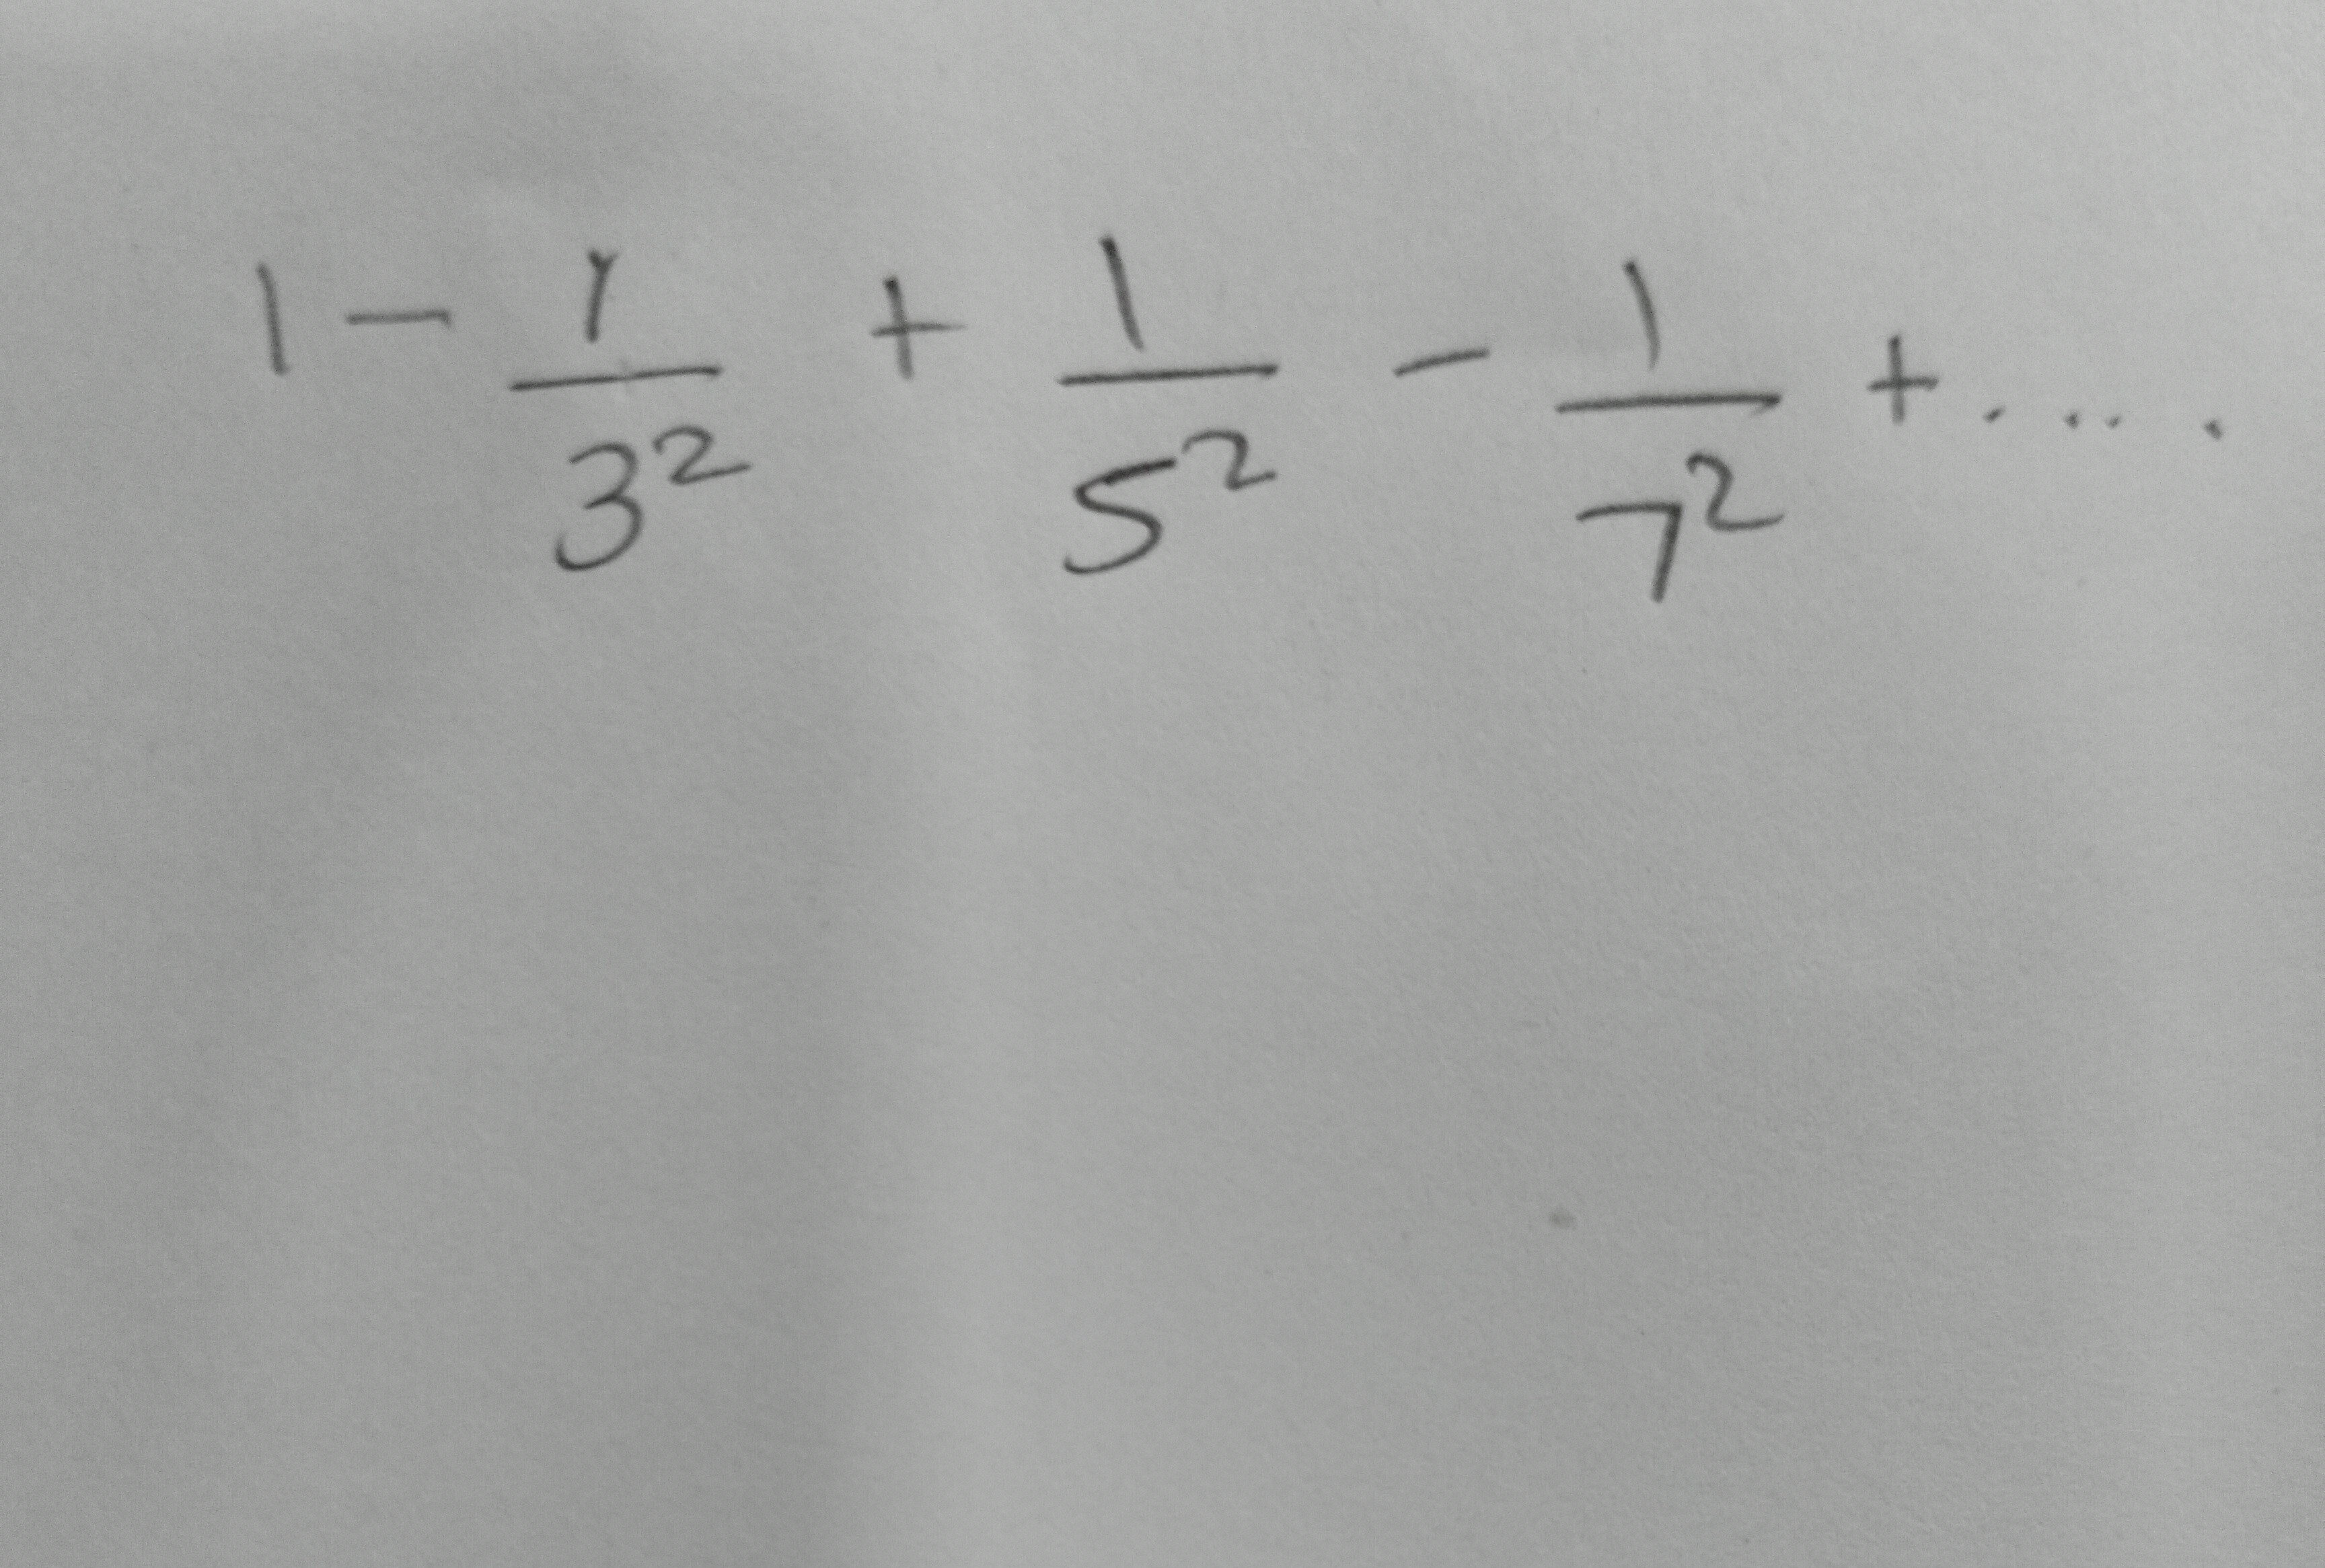 1 - 1/3² + 1/5² - 1/7² + .....